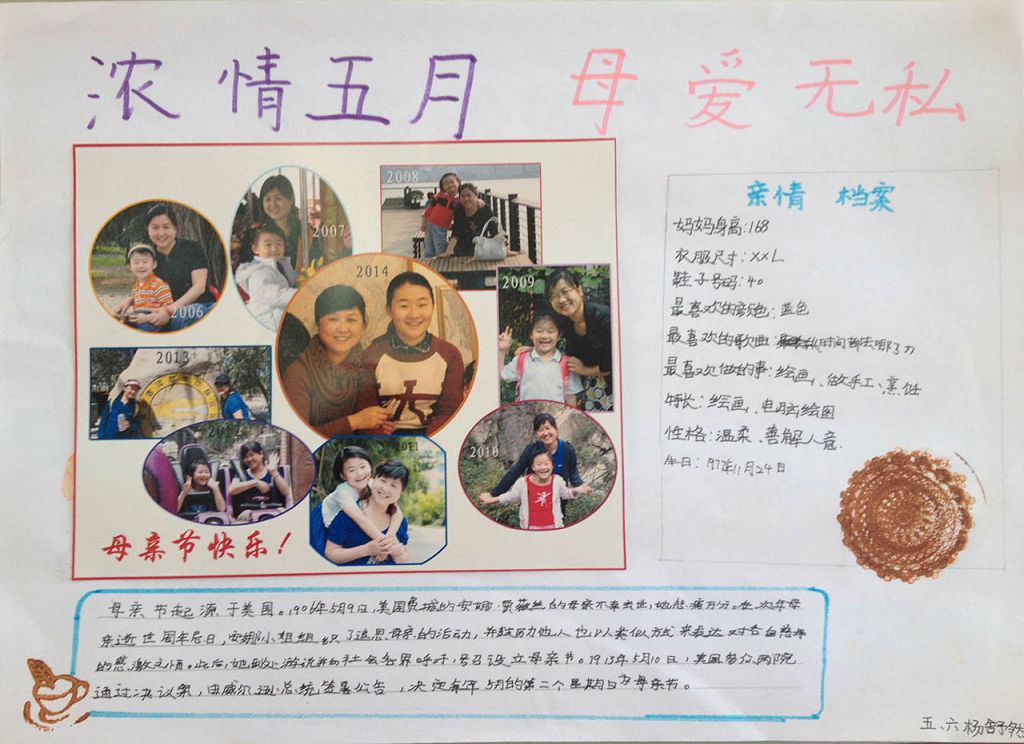 浓情五月 母爱无私
2006
2007
2008
2009
2014
2013
2012
2011
2010
母亲节快乐!
亲情 档案
妈妈身高:168
衣服尺寸:XXL
鞋子号码:40
最喜欢的颜色:蓝色
最喜欢的歌曲:时间都去哪了
最喜欢做的事:绘画、做手工、烹饪
特长:绘画、电脑绘图
性格:温柔、善解人意
生日:11月24日
母亲节起源于美国。1906年5月9日,美国费城的安娜·贾薇丝的母亲不幸去世,她悲痛万分。在次年母
亲逝世周年忌日,安娜小姐组织了追思母亲的活动,并鼓励他人也以类似方式来表达对各自慈母
的感激之情。此后,她到处游说并向社会各界呼吁,号召设立母亲节。1913年5月10日,美国参众两院
通过决议案,由威尔逊总统签署公告,决定每年5月的第二个星期日为母亲节。
五、六 杨舒然